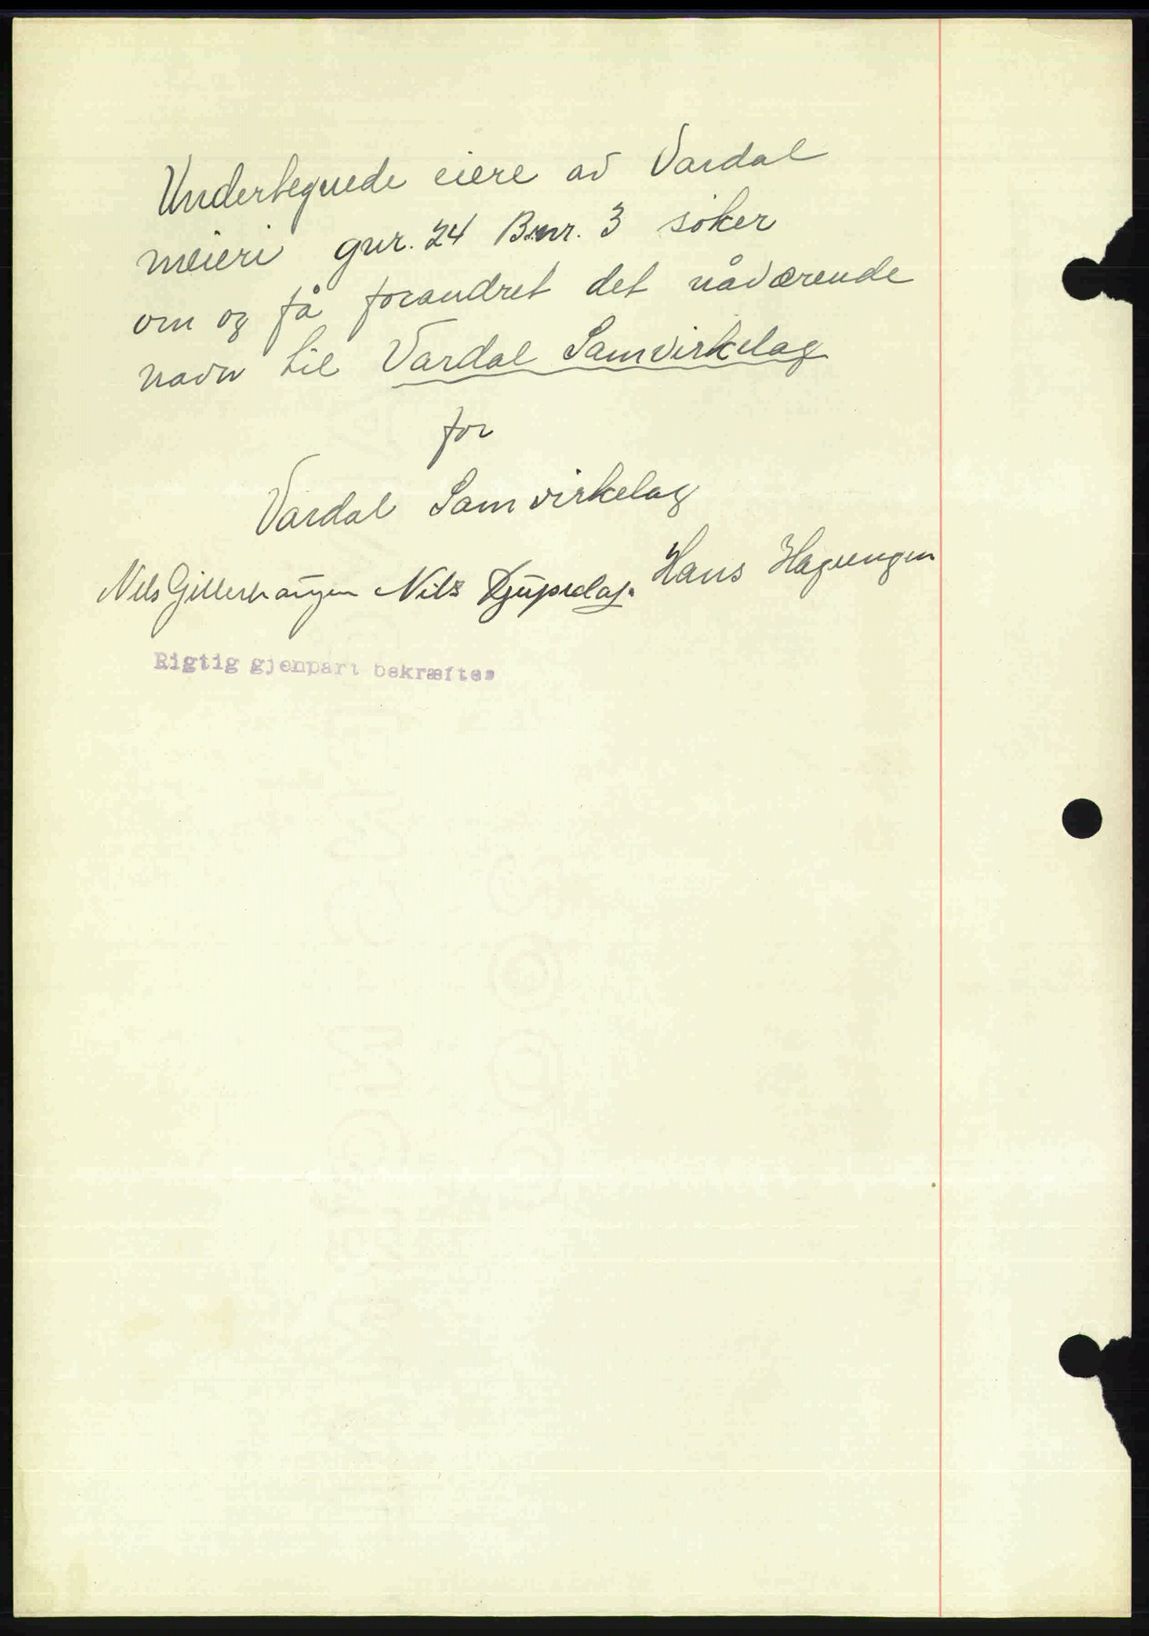 Undertegnede eiere av Vardal
meieri gnr. 24 Bnr. 3 søker
om og få forandret det nåværende
navn til Vardal Samvirkelag
for
Vardal Samvirkelag
Nils Nils Hans Hagenengen
Rigtig gjenpart bekræftes